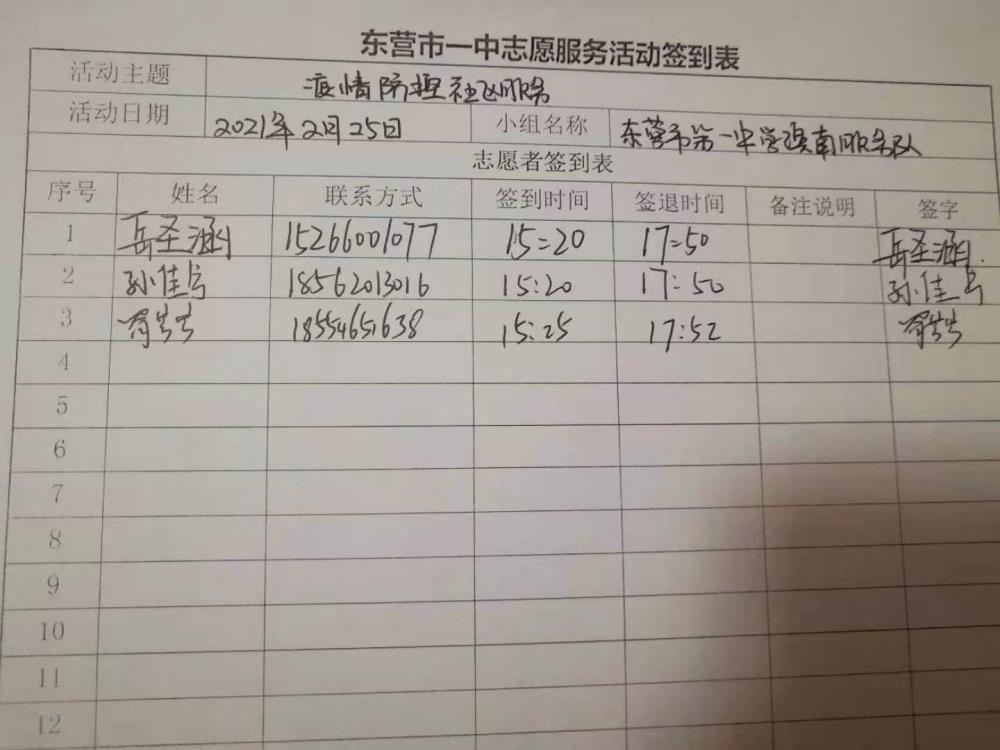 东营市一中志愿服务活动签到表
活动主题 疫情防控社区服务
活动日期 2021年2月25日 小组名称 东营市第一中学滨南服务队
志愿者签到表
序号 姓名 联系方式 签到时间 签退时间 备注说明 签字
1 岳圣涵 15266001077 15:20 17:50 岳圣涵
2 孙佳 18562013016 15:20 17:50 孙佳
3 18554651638 15:25 17:52
4
5
6
7
8
9
10
11
12